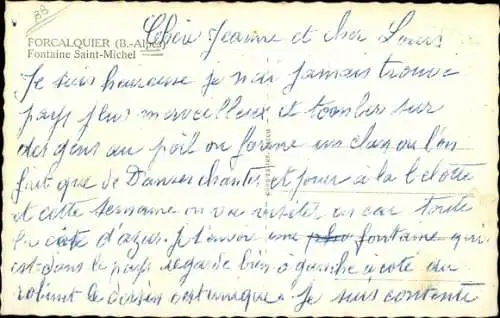 88
Chère Jeanne et cher Louis
FORCALQUIER (B.-Alpes)
Fontaine Saint-Michel
Je suis heureuse je n'ai jamais trouve
pays plus merveilleux et tomber sur
des gens au poil on forme un clan ou l'on
fait que de Danser chanter et jouer a la belotte
et cette semaine on va visiter en car toute
la cote d'azur. Je t'envoie une fontaine qui
est dans le pays regarde bien a gauche a cote du
robinet le dessin est unique. Je suis contente